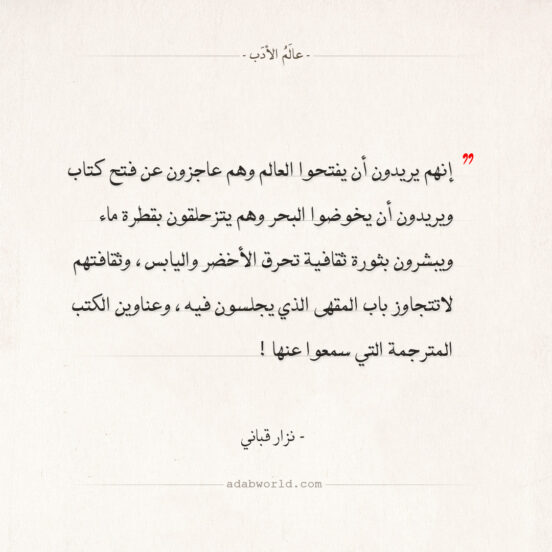 - عالَمُ الأدَب -
”
إنهم يريدون أن يفتحوا العالم وهم عاجزون عن فتح كتاب
ويريدون أن يخوضوا البحر وهم يتزحلقون بقطرة ماء
ويبشرون بثورة ثقافية تحرق الأخضر واليابس ، وثقافتهم
لاتتجاوز باب المقهى الذي يجلسون فيه ، وعناوين الكتب
المترجمة التي سمعوا عنها !
- نزار قباني
adabworld.com